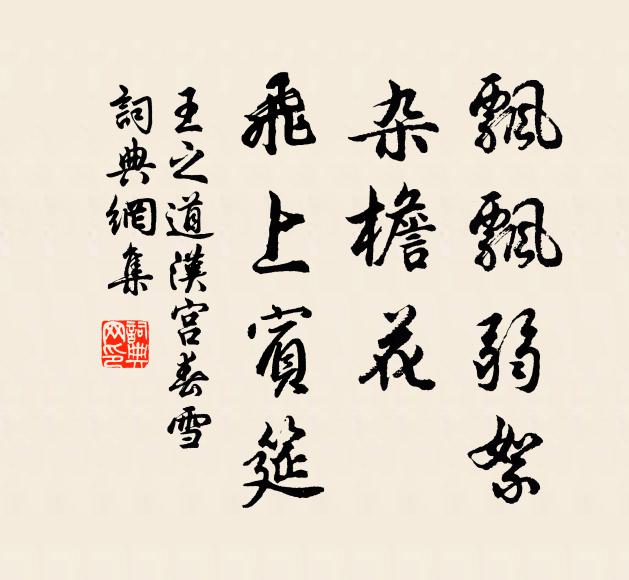 飄飄弱絮
杂檐花
飛上賓筵
王之道漢宮春雪
詞典網集
詞典网印